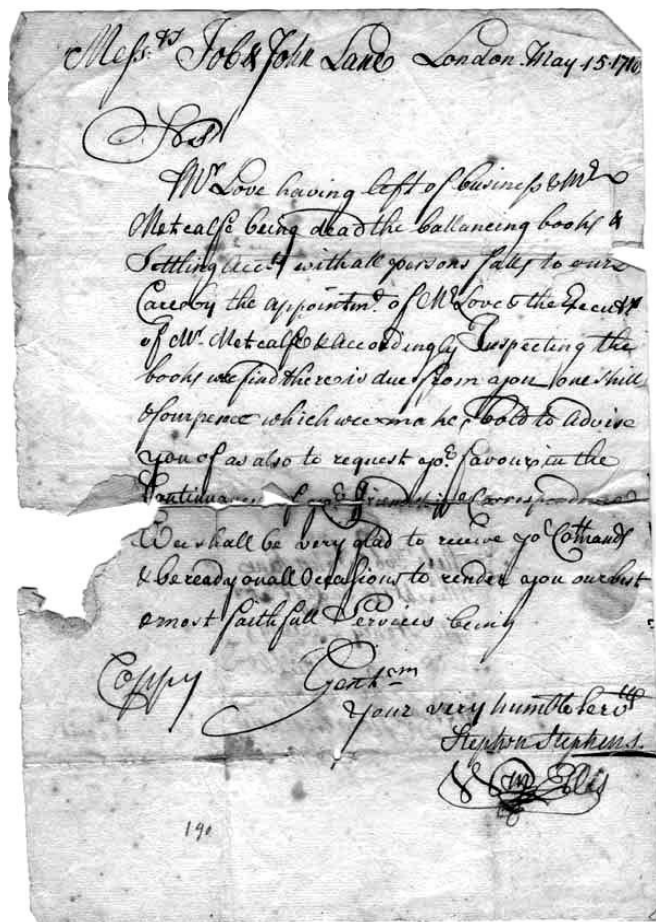 Mess.rs Job & John Lane London May 15. 1710
Srs
Mr Love having left of business & Mr
Metcalfe being dead the ballancing books &
Settling Accts with all persons falls to our
Care by the appointmt. of Mr Love & the Executrs
of Mr. Metcalfe & Accordingly Inspecting the
books we find there is due from you one shill
& fourpence which wee make bold to advise
you of as also to request yor. favour in the
Continuance of yor. friendship & Correspondence
Wee shall be very glad to receive yor Comands
& be ready on all Occasions to render you our best
& most faithfull Services being
Coppy Gentlem
Your very humble Servts
Stephen Stephens.
& Wm Ellis
190